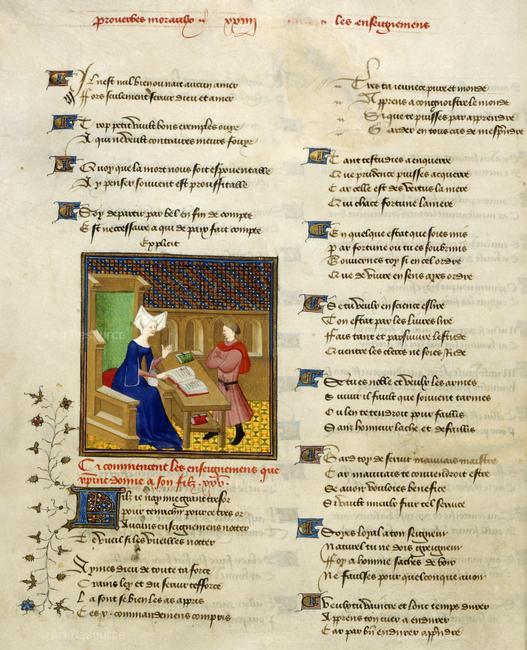 prouerbes moraulx xxiiij les enseignemens
Il nest nul bien ou nait aucun amer
Fors seulement seruir dieu et amer
Trop petit vault bons exemples ouyr
A qui ne veult contraires meurs fouyr
Quoy que la mort nous soit espouentable
A y penser souuent est prouffitable
Soy departir par bel en fin de compte
Est necessaire a qui de pais fait compte
Explicit
Cy commencent les enseignemens que
xpine donne a son filz .xxv.
Filz ie nay mie grant tresor
Pour tenrichir pour ce tres or
Aucuns enseignemens noter
Te vueil si les vueilles noter
Aymes dieu de toute ta force
Crains le et du seruir tefforce
La sont se bien les as apris
Les .x. commandemens compris
Tres ta ieunece pure et monde
Apprens a congnoistre le monde
Si que tu puisses par apprendre
Garder en tous cas de mesprendre
Tant testudies a enquerre
Que prudence puisses acquerre
Car celle est des vertus la mere
Qui chace fortune lamere
En quelque estat que soies mis
Par fortune ou tu es soubzmis
Gouuernes toy si en cel ordre
Que de viure en sens ayes ordre
Se tu veulx en science eslire
Ton estat par les liures lire
Fais tant et par suiure lestude
Quentre les clercs ne soies rude
Se tu es noble et veulx les armes
Suiuir il fault que souuent tarmes
Ou len te tendroit pour faillis
Sans honneur lache et deffaillis
Gard toy de seruir mauuais maistre
Car mauuais te conuiendroit estre
Se auoir vouloies benefice
Si vault mieulx fuir tel seruice
Soyes loyal a ton seigneur
Naturel tu ne dois greigneur
Foy a homme saches de voir
Ne faulses pour quelconque auoir
Veulx tu vaincre et long temps durer
Apprens ton cuer a endurer
Car par bien endurer apprendre